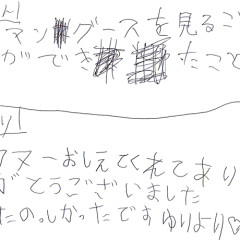 マン グースを見るこ
ができ たこと
ヌーおしえてくれてあり
がとうございました
たの。しかったです ゆりより♡